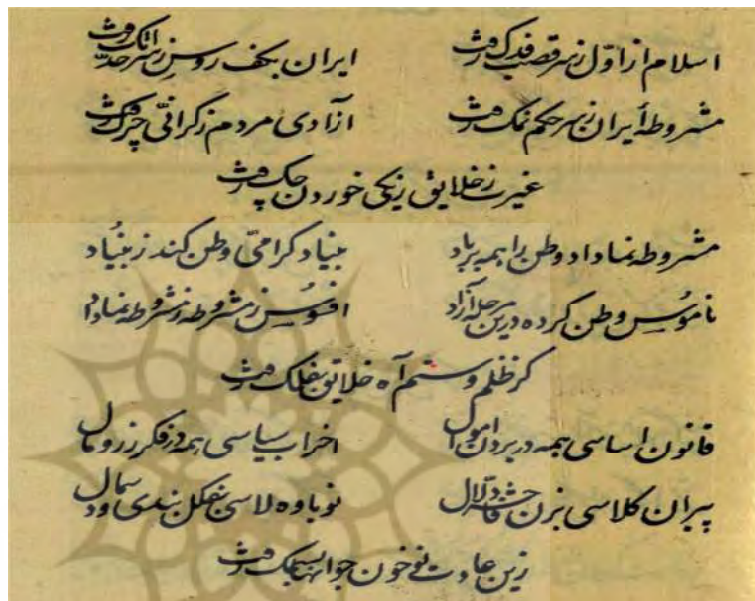 اسلام از اول ز سر قصب فدک رفت ایران بکف روس ز سرحد اتک رفت
مشروطهٔ ایران ز سر حکم نمک رفت آزادی مردم ز گرانی چرک رفت
غیرت ز خلایق ز یکی خوردن چک رفت
مشروطه نما داد وطن را همه بر باد بنیاد گرامی وطن کند ز بنیاد
ناموس وطن کرده درین مرحله آزاد افسوس ز مشروطه ز مشروطه نما داد
کز ظلم و ستم آه خلایق بفلک رفت
قانون اساسی همه در بردن اموال احزاب سیاسی همه در فکر زر و مال
پیران کلاسی بزن دلال نوباوه لاسی بفکل بندی
زین عادت نو خون جوانها رفت